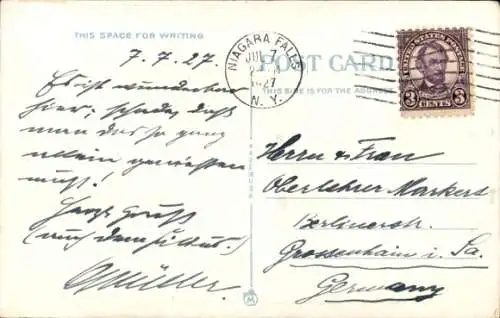 THIS SPACE FOR WRITING
7.7.27.
Es ist wunderbar
hier; schade, daß
man das so ganz
allein genießen
muß!
Herzl. Gruß
(auch dem
GMüller.
NIAGARA FALLS
JUL 7
1927
N. Y.
POST CARD
THIS SIDE IS FOR THE ADDRESS
UNITED STATES POSTAGE
3 CENTS 3
Herrn & Frau
Oberlehrer Markert
Berlinerstr.
Grossenhain i. Sa.
Germany
M